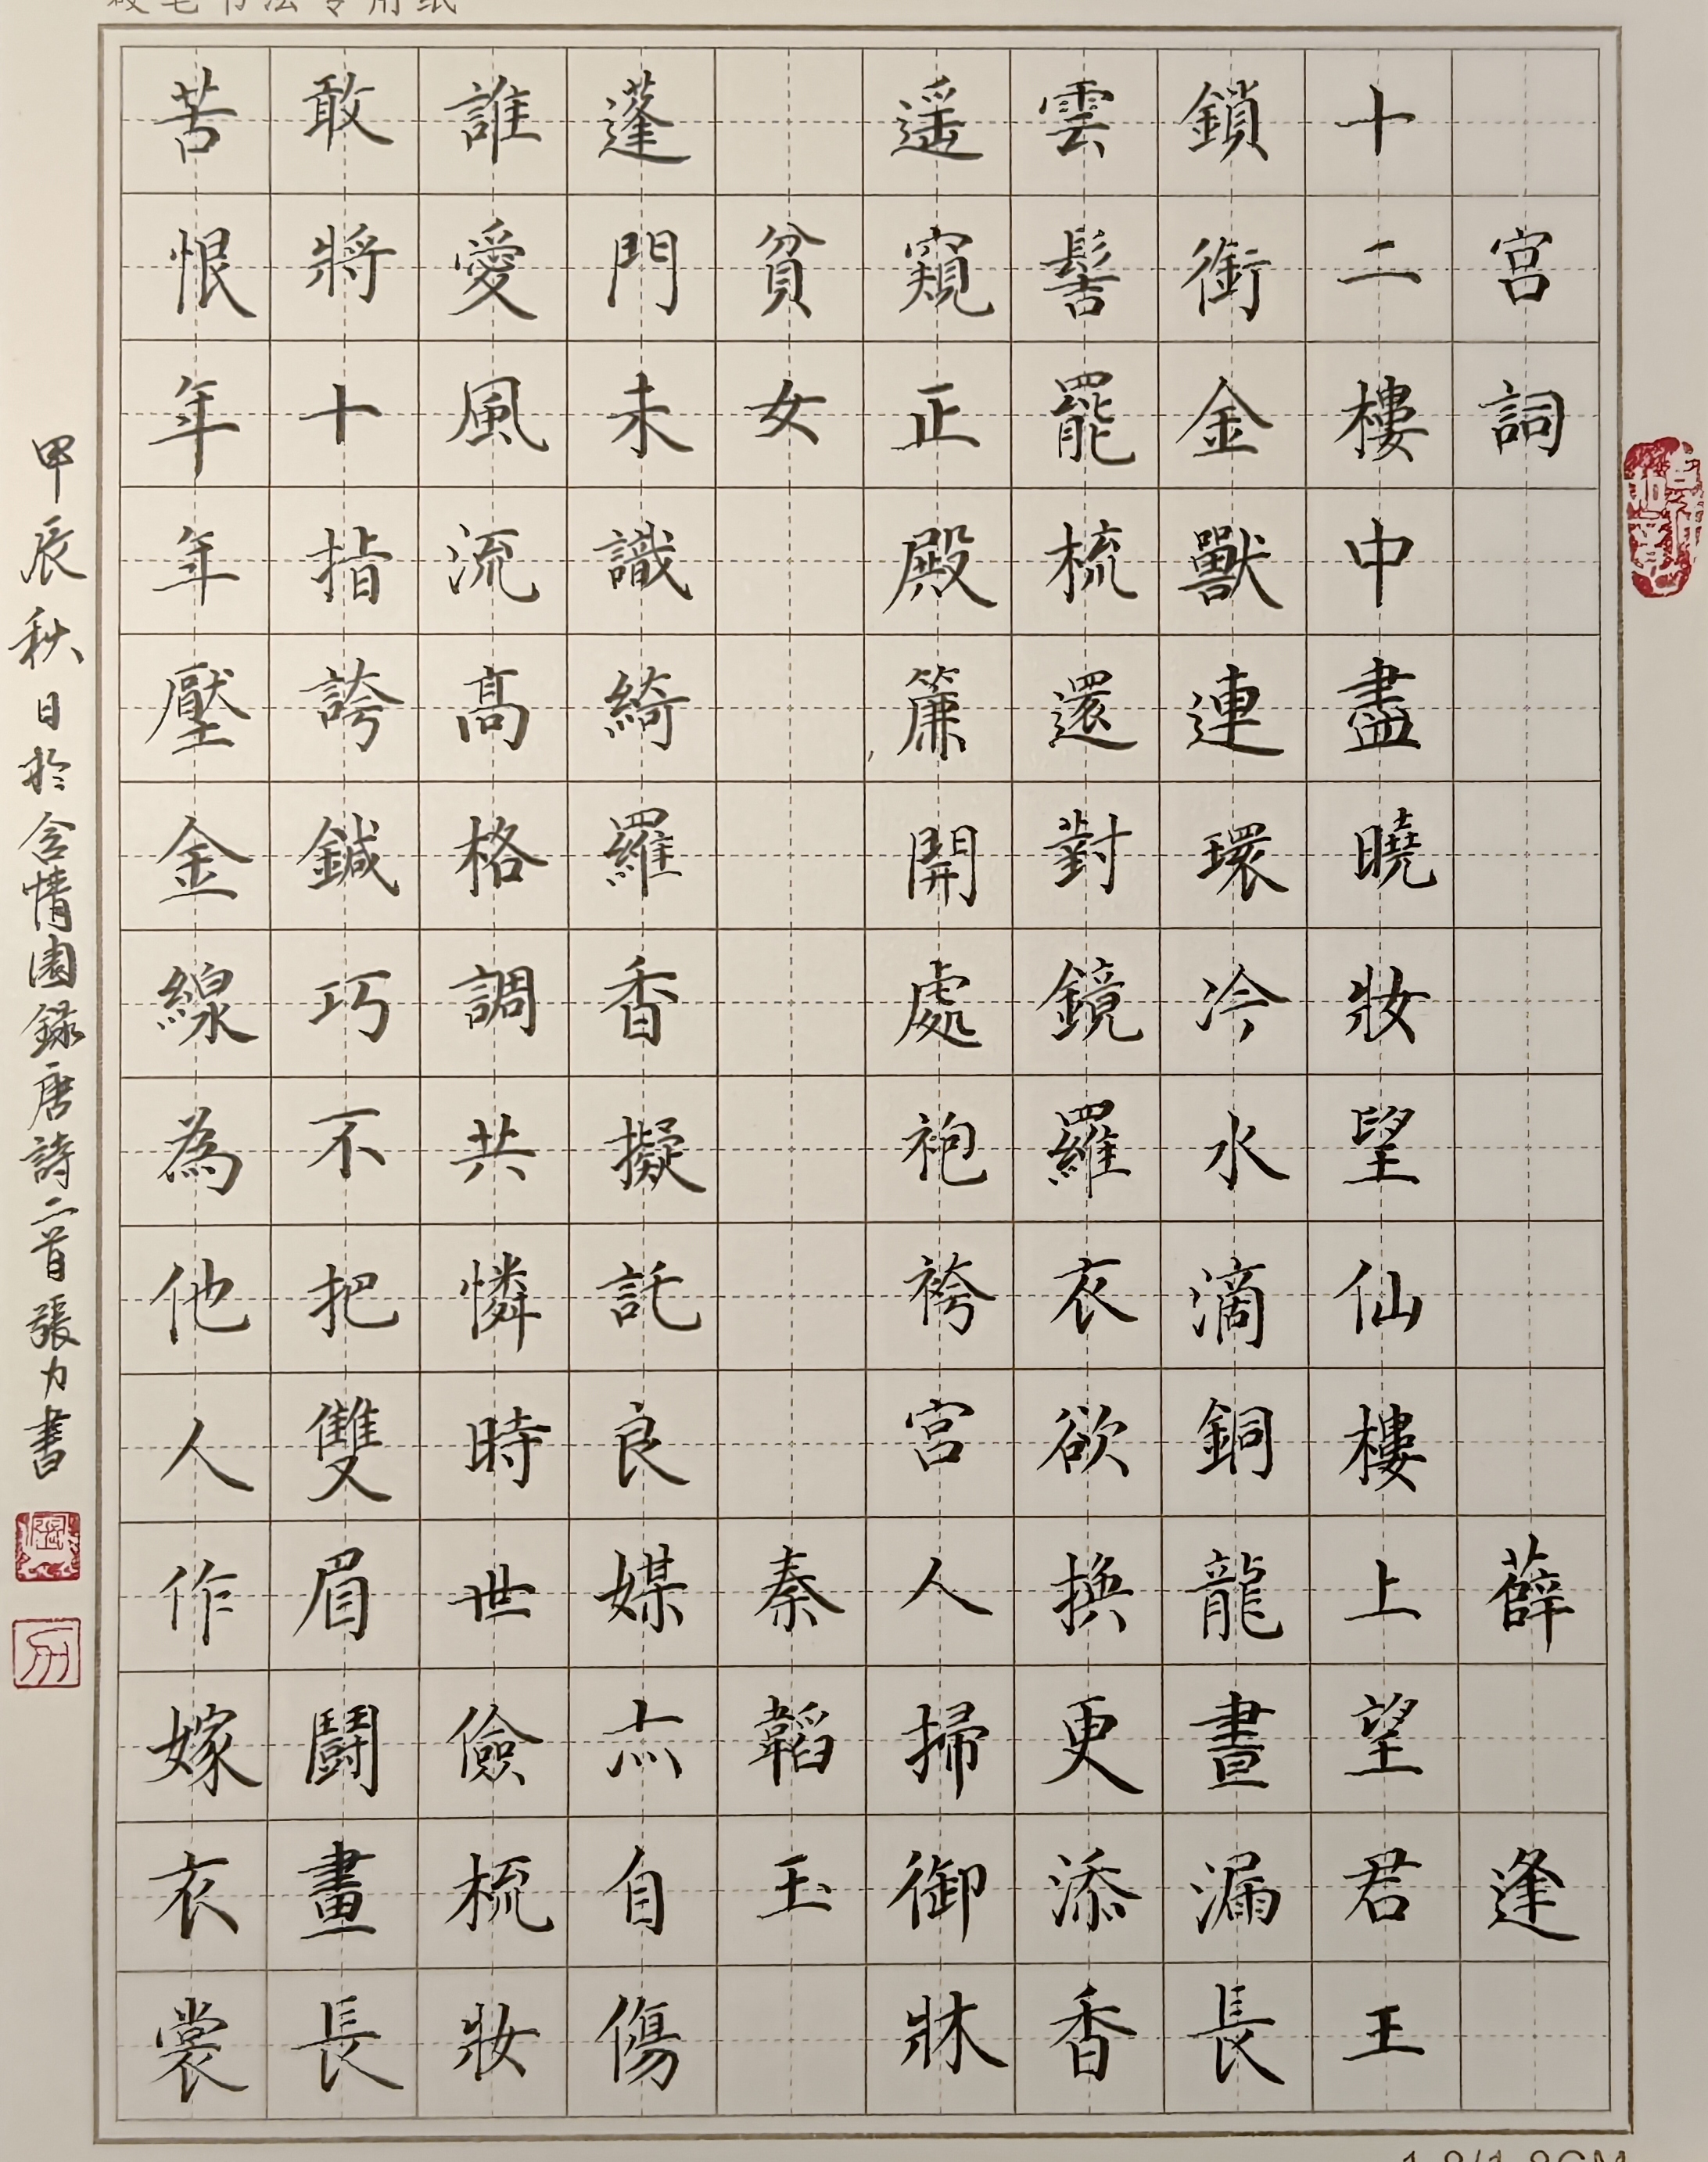 宮詞 薛逢
十二樓中盡曉妝望仙樓上望君王
鎖銜金獸連環冷水滴銅龍晝漏長
雲髻罷梳還對鏡羅衣欲換更添香
遥窺正殿簾開處袍袴宮人掃御牀
貧女 秦韜玉
蓬門未識綺羅香擬託良媒亦自傷
誰愛風流高格調共憐時世儉梳妝
敢將十指誇鍼巧不把雙眉鬭畫長
苦恨年年壓金線為他人作嫁衣裳
甲辰秋日於含情園錄唐詩二首張力書